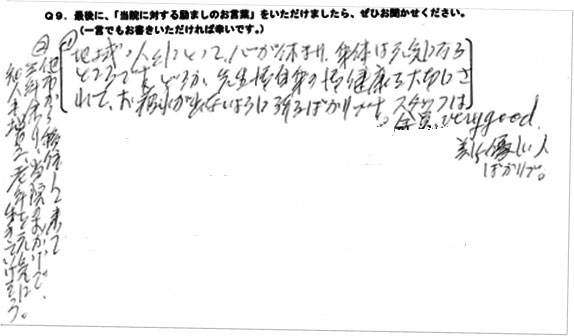 Q9．最後に、「当院に対する励ましのお言葉」をいただけましたら、ぜひお聞かせください。
（一言でもお書きいただければ幸いです。）
① 地域の人々にとって、心が休まり、身体は元気になる
ところです。どうか、先生御自身の御健康を大切にさ
れて、お疲れが出ないように祈るばかりです。スタッフは
全員 very good.
美しく優しい人
ばかりです。
② 他市から移住して来て
三年余り、当院のおかげで、
知人も増え、老年を元気に
生きていけそう。